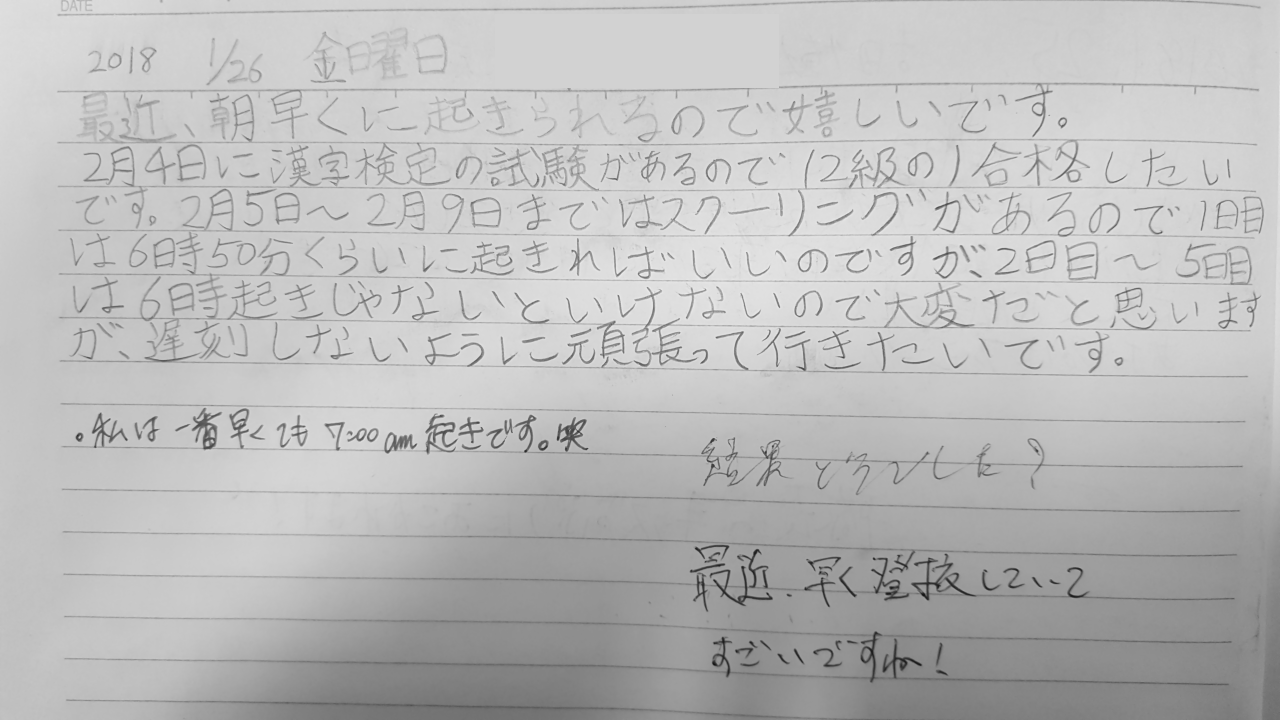 DATE
2018 1/26 金曜日
最近、朝早くに起きられるので嬉しいです。
2月4日に漢字検定の試験があるので(2級の)合格したい
です。2月5日〜2月9日まではスクーリングがあるので1日目
は6時50分くらいに起きればいいのですが、2日目〜5日目
は6時起きじゃないといけないので大変だと思います
が、遅刻しないように頑張って行きたいです。
。私は一番早くても7:00am起きです。笑
結果どうでした?
最近、早く登校していて
すごいですね!